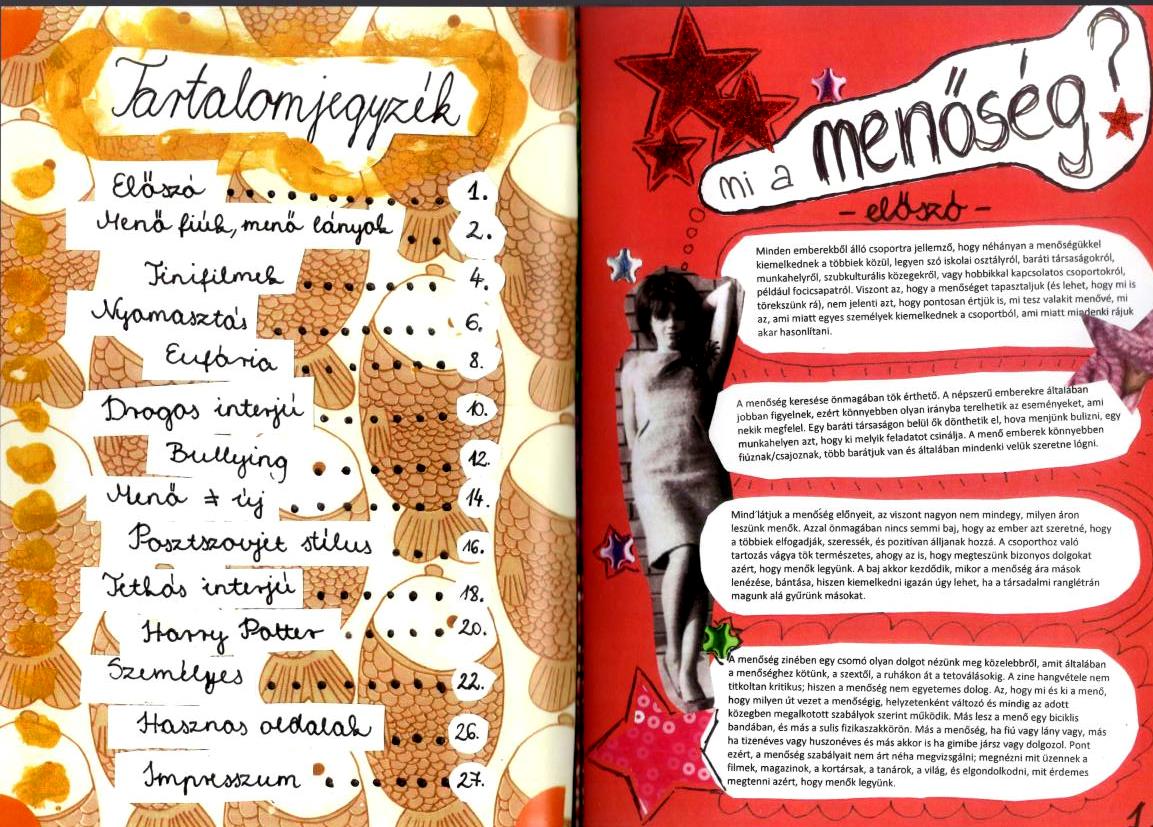 Tartalomjegyzék
Előszó 1.
Menő fiúk, menő lányok 2.
Tinifilmek 4.
Nyomasztás 6.
Eufória 8.
Drogos interjú 10.
Bullying 12.
Menő ≠ új 14.
Posztszovjet stílus 16.
Tetkós interjú 18.
Harry Potter 20.
Személyes 22.
Hasznos oldalak 26.
Impresszum 27.
mi a menőség?
- előszó -
Minden emberekből álló csoportra jellemző, hogy néhányan a menőségükkel
kiemelkednek a többiek közül, legyen szó iskolai osztályról, baráti társaságokról,
munkahelyről, szubkulturális közegekről, vagy hobbikkal kapcsolatos csoportokról,
például focicsapatról. Viszont az, hogy a menőséget tapasztaljuk (és lehet, hogy mi is
törekszünk rá), nem jelenti azt, hogy pontosan értjük is, mi tesz valakit menővé, mi
az, ami miatt egyes személyek kiemelkednek a csoportból, ami miatt mindenki rájuk
akar hasonlítani.
A menőség keresése önmagában tök érthető. A népszerű emberekre általában
jobban figyelnek, ezért könnyebben olyan irányba terelhetik az eseményeket, ami
nekik megfelel. Egy baráti társaságon belül ők dönthetik el, hova menjünk bulizni, egy
munkahelyen azt, hogy ki melyik feladatot csinálja. A menő emberek könnyebben
fiúznak/csajoznak, több barátjuk van és általában mindenki velük szeretne lógni.
Mind látjuk a menőség előnyeit, az viszont nagyon nem mindegy, milyen áron
leszünk menők. Azzal önmagában nincs semmi baj, hogy az ember azt szeretné, hogy
a többiek elfogadják, szeressék, és pozitívan álljanak hozzá. A csoporthoz való
tartozás vágya tök természetes, ahogy az is, hogy megteszünk bizonyos dolgokat
azért, hogy menők legyünk. A baj akkor kezdődik, mikor a menőség ára mások
lenézése, bántása, hiszen kiemelkedni igazán úgy lehet, ha a társadalmi ranglétrán
magunk alá gyűrünk másokat.
A menőség zinében egy csomó olyan dolgot nézünk meg közelebbről, amit általában
a menőséghez kötünk, a szextől, a ruhákon át a tetoválásokig. A zine hangvétele nem
titkoltan kritikus; hiszen a menőség nem egyetemes dolog. Az, hogy mi és ki a menő,
hogy milyen út vezet a menőségig, helyzetenként változó és mindig az adott
közegben megalkotott szabályok szerint működik. Más lesz a menő egy biciklis
bandában, és más a sulis fizikaszakkörön. Más a menőség, ha fiú vagy lány vagy, más
ha tizenéves vagy huszonéves és más akkor is ha gimibe jársz vagy dolgozol. Pont
ezért, a menőség szabályait nem árt néha megvizsgálni; megnézni mit üzennek a
filmek, magazinok, a kortársak, a tanárok, a világ, és elgondolkodni, mit érdemes
megtenni azért, hogy menők legyünk.
1